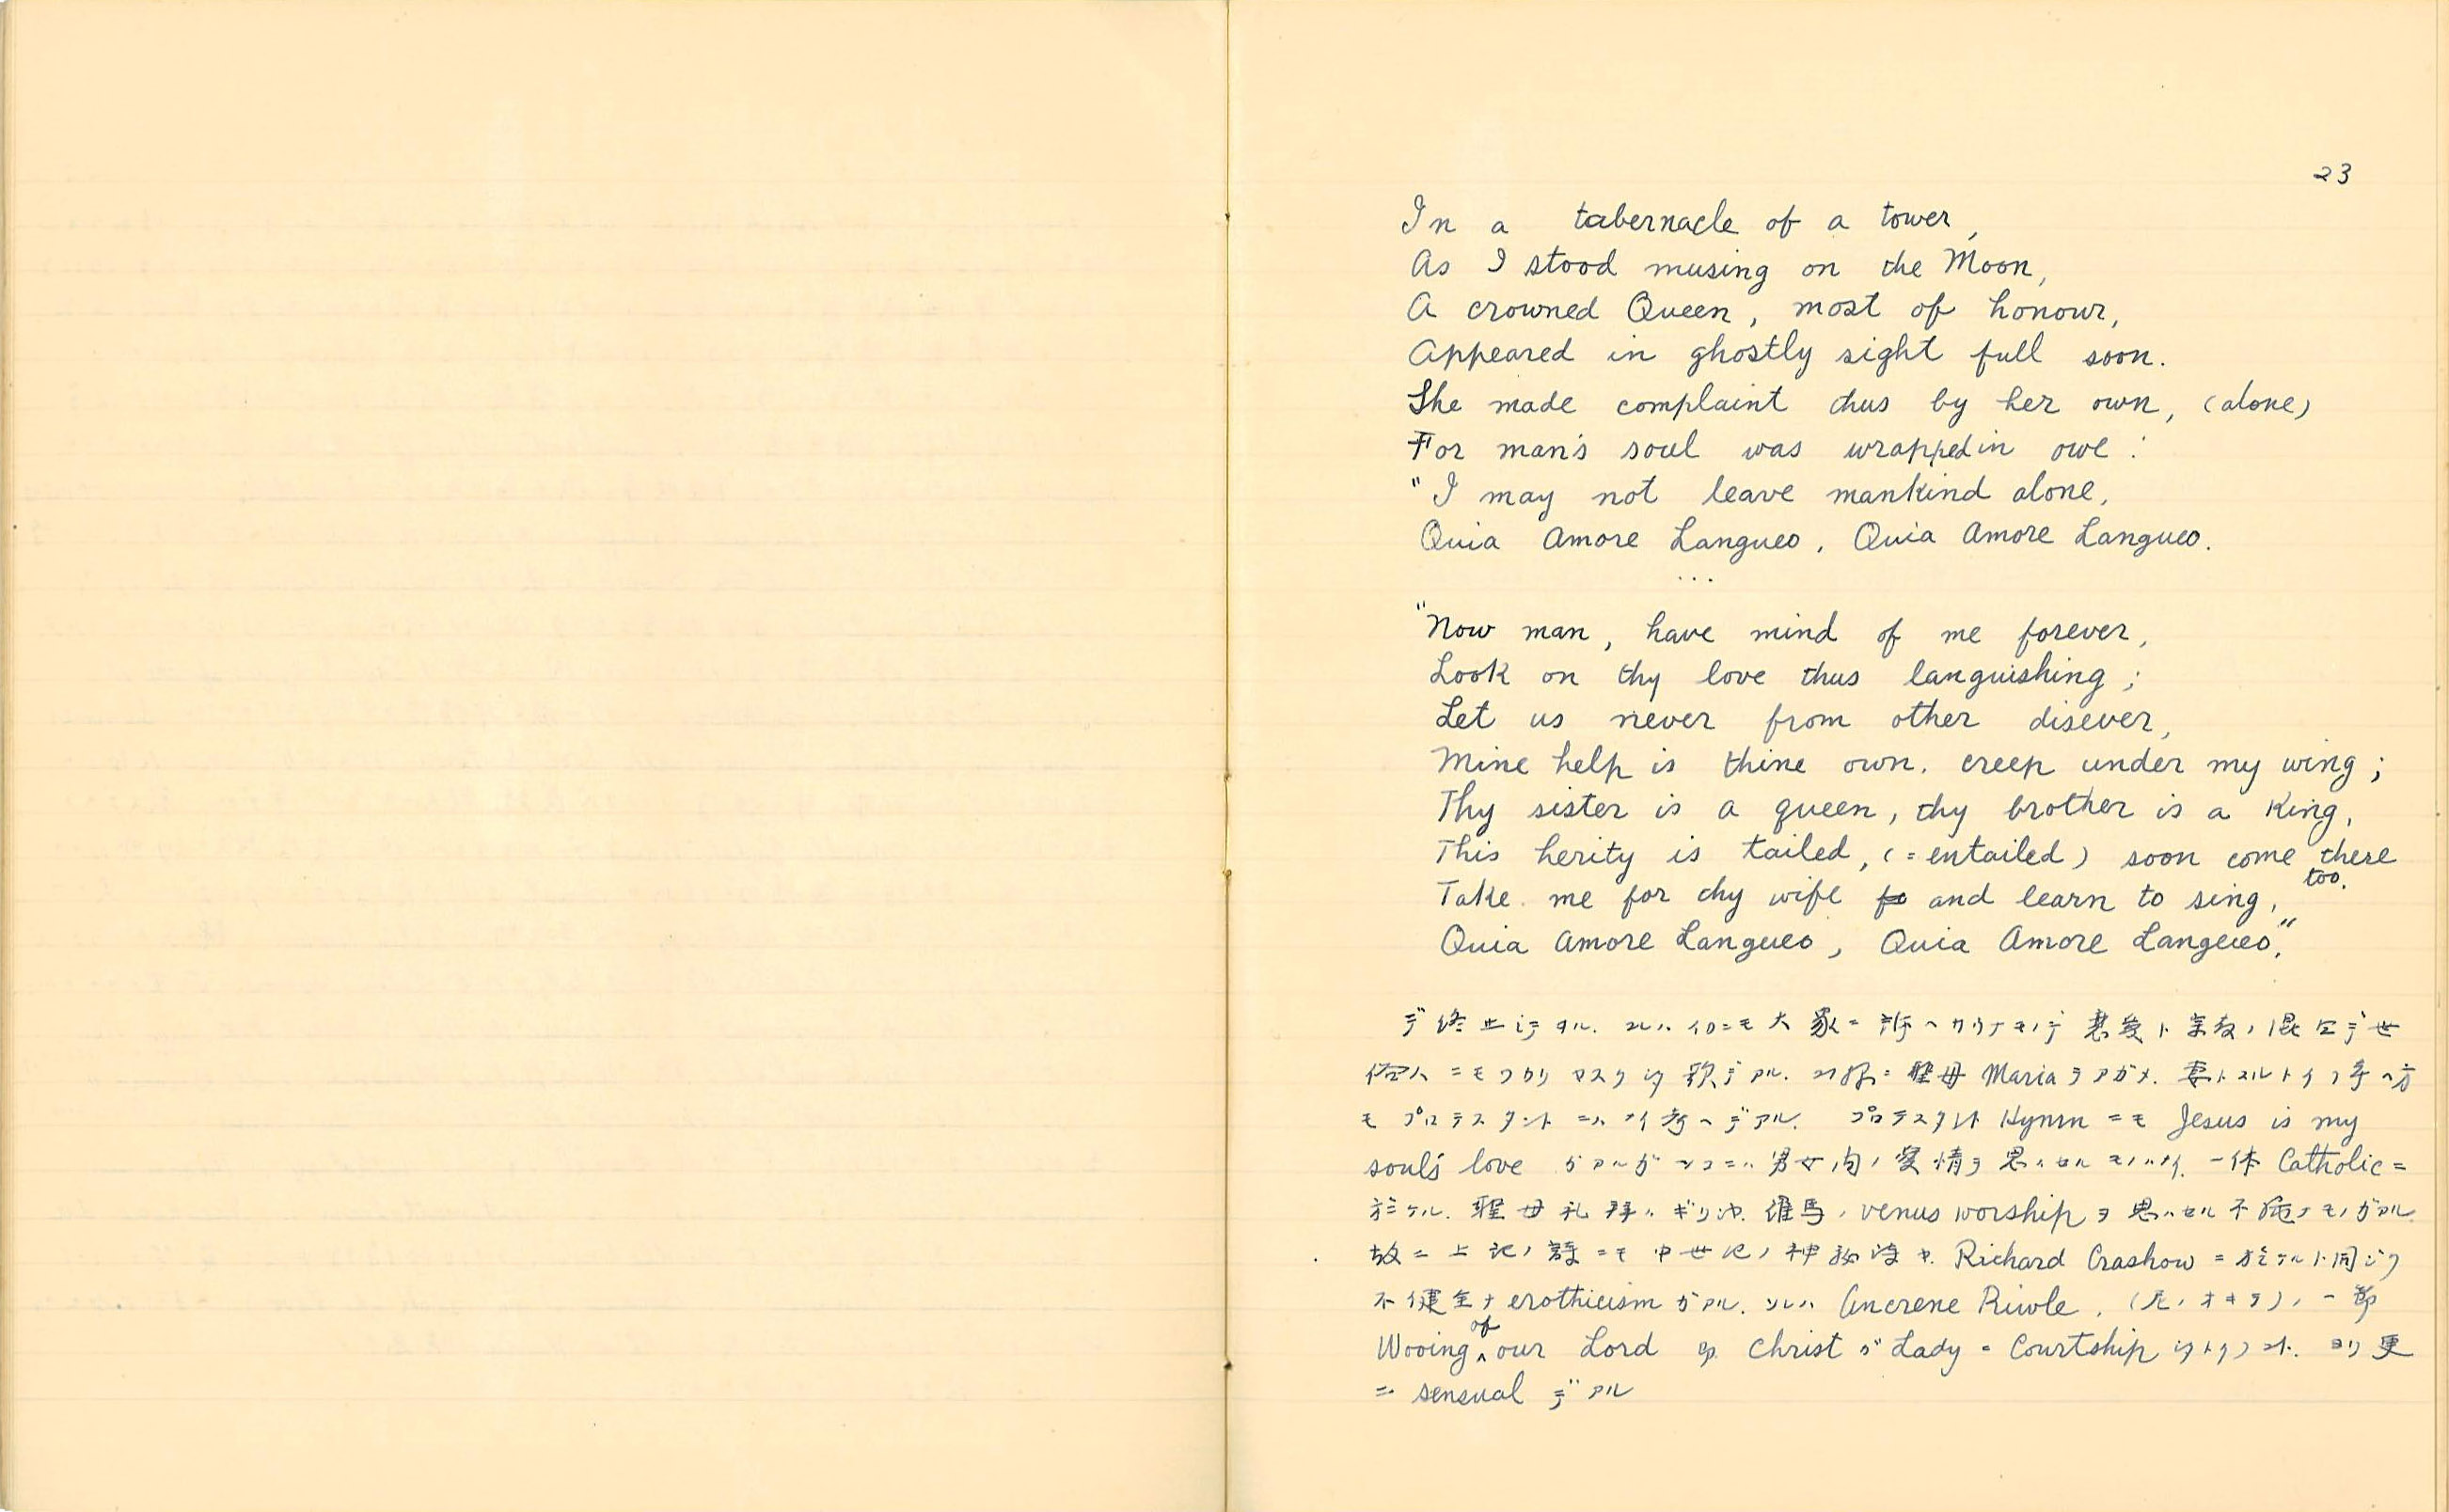 23
In a tabernacle of a tower,
As I stood musing on the Moon,
A crowned Queen, most of honour,
Appeared in ghostly sight full soon.
She made complaint thus by her own, (alone)
For man's soul was wrapped in owe:
"I may not leave mankind alone,
Quia Amore Langueo, Quia Amore Langueo.
...
"Now man, have mind of me forever,
Look on thy love thus languishing;
Let us never from other disever,
Mine help is thine own. creep under my wing;
Thy sister is a queen, thy brother is a King,
This herity is tailed, (=entailed) soon come there too.
Take me for thy wife and learn to sing,
Quia Amore Langueo, Quia Amore Langueo."
デ終止シテヰル. コレハイカニモ大衆ニ訴ヘサウナモノデ 恋愛ト宗教ノ混 デ世
俗人ニモワカリヤスクイ歌デアル. 聖母 Maria ヲアガメ. 妻トスルトイフ考ヘ方
モ プロテスタント ニハナイ考ヘデアル. プロテスタント Hymn ニモ Jesus is my
soul's love ガアルガ ソコニハ男女間ノ愛情ヲ思ハセルモノハナイ. 一体 Catholic ニ
於ケル. 聖母礼拝ハギリシヤ. 羅馬ノ venus worship ヲ思ハセル不純ナモノガアル
故ニ上記ノ詩ニモ中世紀ノ神秘詩ヤ. Richard Crashow ニ於ケルト同ジク
不健全ナ erothicism ガアル. ソレハ Ancrene Riwle. (尼ノオキテ)ノ一節
Wooing of our Lord 即 Christ ガ Lady ニ Courtship ヨリ更
ニ sensual デアル